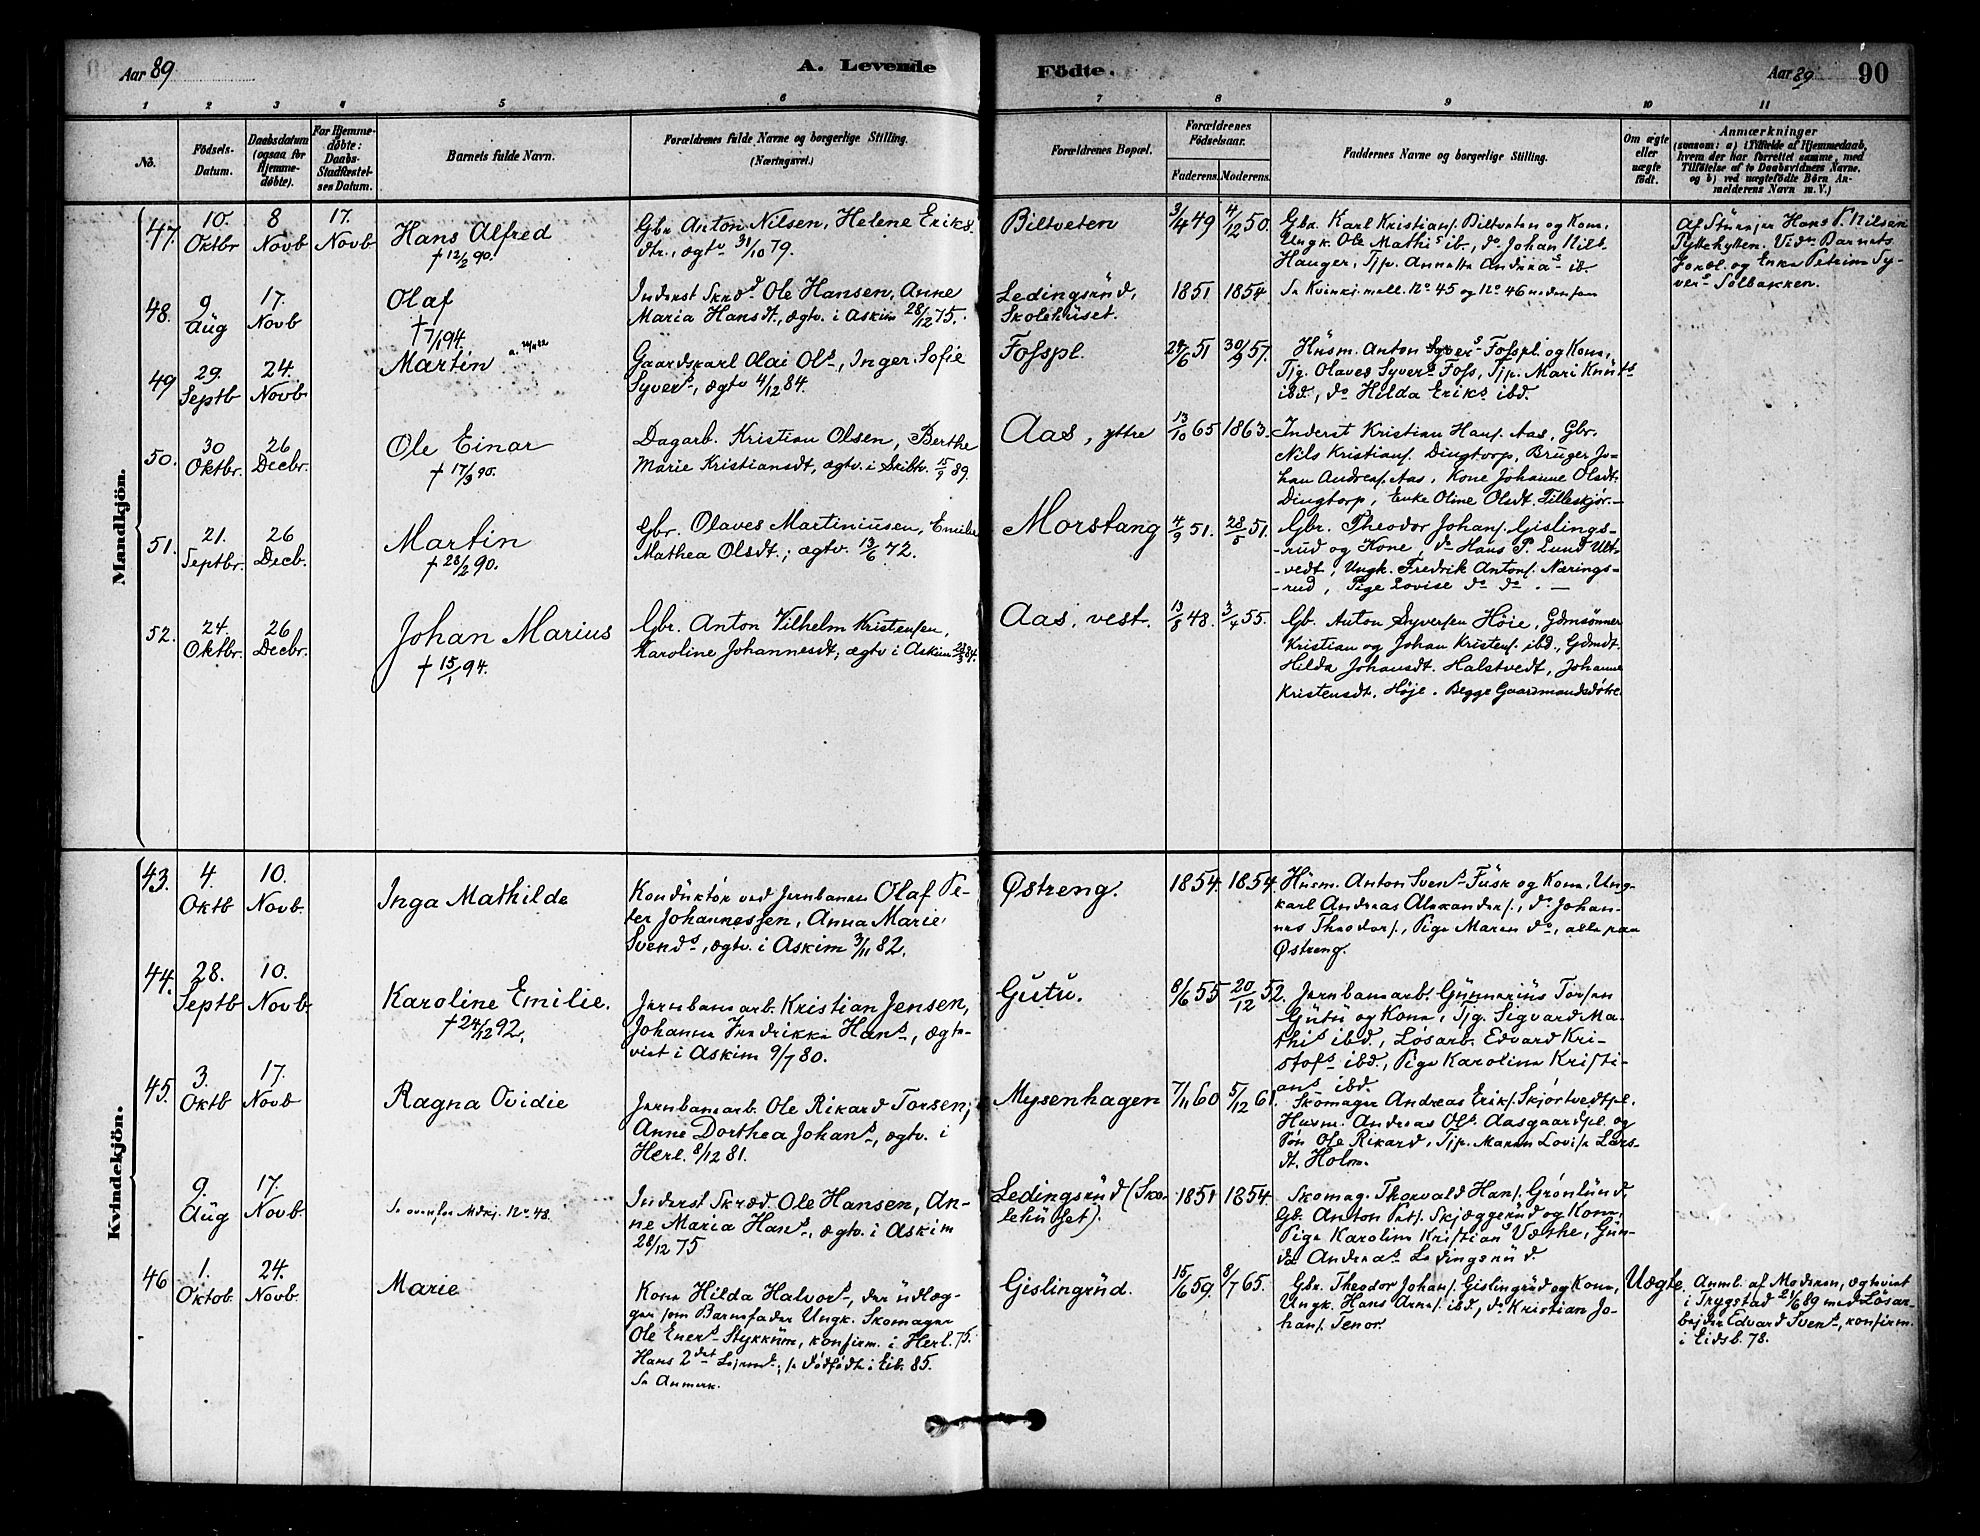 Aar 89
A. Levende
Födte.
Aar 89
90
1 2 3 4 5 6 7 8 9 10 11
No.
Födsels-
Datum.
Daabsdatum
(ogsaa for
Hjemme-
döbte).
For Hjemme-
döbte:
Daabs-
Stadfæstel-
ses Datum.
Barnets fulde Navn.
Forældrenes fulde Navne og borgerlige Stilling.
(Næringsvei.)
Forældrenes Bopæl.
Forældrenes
Födselsaar.
Faderens. Moderens.
Faddernes Navne og borgerlige Stilling.
Om ægte
eller
uægte
födt.
Anmærkninger
(saasom: a) i Tilfælde af Hjemmedaab,
hvem der har forrettet samme, med
Tilföielse af to Daabsvidners Navne.
og b) ved uægtefödte Börn An-
melderens Navn m. V.)
Mandkjön.
47.
10.
Oktbr
8
Novb
17.
Novb
Hans Alfred
† 12/2 90.
Gbr Anton Nilsen, Helene Eriks
dtr., ægtv 31/10 79.
Biltveten
3/4 49
4/12 50.
Gbr. Karl Kristians. Biltveten og Kone,
Ungk. Ole Mathis ib., do Johan Nils.
Hauger, Tjp. Annette Andreas ib.
Af Hans P. Nilsen
Pyttehytten. Vidn Barnets
Foræl. og Enke Petrine Sy-
vers Solbakken.
48.
9
Aug
17.
Novb
Olaf
† 7/1 94.
Inderst Skræd Ole Hansen, Anne
Maria Hansdt., ægtv. i Askim 28/12 75.
Ledingsrud,
Skolehuset.
1851
1854
Se Kvinkj. mell. No 45 og No 46 nedenfor
49
29.
Septb
24.
Novb
Martin
Gaardskarl Olai Ols, Inger Sofie
Syvers, ægtv 4/12 84.
Fosspl.
24/6 51
30/9 57.
Husm. Anton Syvers Fosspl. og Kone,
Tjg. Olaves Syvers Foss, Tjp. Mari Knuts
ibd., do Hilda Eriks ibd.
50.
30
Oktbr.
26
Decbr.
Ole Einar
† 17/3 90.
Dagarb. Kristian Olsen, Berthe
Marie Kristiansdt, ægtv. i Skibtv. 15/9 89.
Aas, ytre
13/10 65
1863.
Inderst Kristian Hans. Aas, Gbr.
Nils Kristians. Dingtorp, Bruger Jo-
han Andreas. Aas, Kone Johanne Olsdt.
Dingtorp, Enke Oline Olsdt. Tilleskjør.
51.
21.
Septbr.
26
Decb.
Martin
† 28/2 90.
Gbr. Olaves Martiniusen, Emilie
Mathea Olsdt.; ægtv. 13/6 72.
Morstang
4/9 51.
28/5 51.
Gbr. Theodor Johans. Gislings-
-rud og Kone, do Hans P. Lund Ult-
-vedt, Ungk. Fredrik Antons. Nærings-
-rud, Pige Lovise do do. —
52.
24.
Oktbr.
26
Decbr.
Johan Marius
† 15/1 94.
Gbr. Anton Vilhelm Kristensen,
Karoline Johannesdt; ægtv i Askim
Aas, vest.
13/8 48.
3/4 55.
Gb. Anton Syversen Høie, Gdmsønner
Kristian og Johan Kristens. ibd., Gdmdt.
Hilda Johansdt. Halstvedt, Johanne
Kristensdt. Høje. Begge Gaardmandsdøtre
Kvindekjön.
43.
4.
Oktb
10.
Novb.
Inga Mathilde
Konduktør ved Jernbanen Olaf Pe-
ter Johannessen, Anna Marie
Svends, ægtv. i Askim 3/11 82.
Østreng.
1854.
1854.
Husm. Anton Svens Fusk og Kone, Ung-
karl Andreas Alexanders., do Johan-
nes Theodors., Pige Maren do, alle paa
Østreng.
44.
28.
Septb
10.
Novb.
Karoline Emilie.
† 24/12 92.
Jernbanearb. Kristian Jensen,
Johanne Fredrikke Hans, ægt-
viet i Askim 9/7 80.
Gutu.
8/6 55
20/12 52.
Jernbanearb. Gunnarius Torsen
Gutu og Kone, Tjg. Sigvard Ma-
this ibd., Løsarb. Edvard Kri-
stofs ibd., Pige Karoline Kristi-
ans ibd.
45.
3.
Oktb
17.
Novb
Ragna Ovidie
Jernbanearb. Ole Rikard Torsen,
Anne Dorthea Johans, ægtv. i
Herl. 8/12 81.
Mysenhagen
7/11 60
5/12 61.
Skomager Andreas Eriks. Skjørtvedtpl.
Husm. Andreas Ols Aasgaardpl. og
Søn Ole Rikard, Tjp. Maren Lovise Lars-
dt. Holm.
9.
Aug
17.
Novb.
Se ovenfor Mdkj. No 48.
Inderst Skræd. Ole Hansen, An-
ne Maria Hans, ægtv. i Askim
28/12 75
Ledingsrud (Sko-
lehuset).
1851
1854.
Skomag. Thorvald Hans. Grønlund,
Gb. Anton Pets. Skjæggerud og Kone,
Pige Karoline Kristians Væthe, Gun-
da Andreas Ledingsrud.
46
1.
Oktob.
24.
Novb.
Marie
Kone Hilda Halvors, der udlæg-
ger som Barnefader Ungk. Skomager
Ole Eners Stykkum, konfirm. i Herl. 75.
Hans 2det Lejrmd., dødfødt i Eib. 85.
Se Anmerk.
Gislingrud.
15/6 59
8/7 65.
Gbr. Theodor Johans. Gislingrud og Kone,
Ungk. Hans Arnes. ibd., do Kristian Jo-
hans. Tenor.
Uægte
Anml. af Moderen, ægteviet
i Trygstad 21/6 89 med Løsar-
bejder Edvard Svens, konfirm.
i Eidsb. 78.